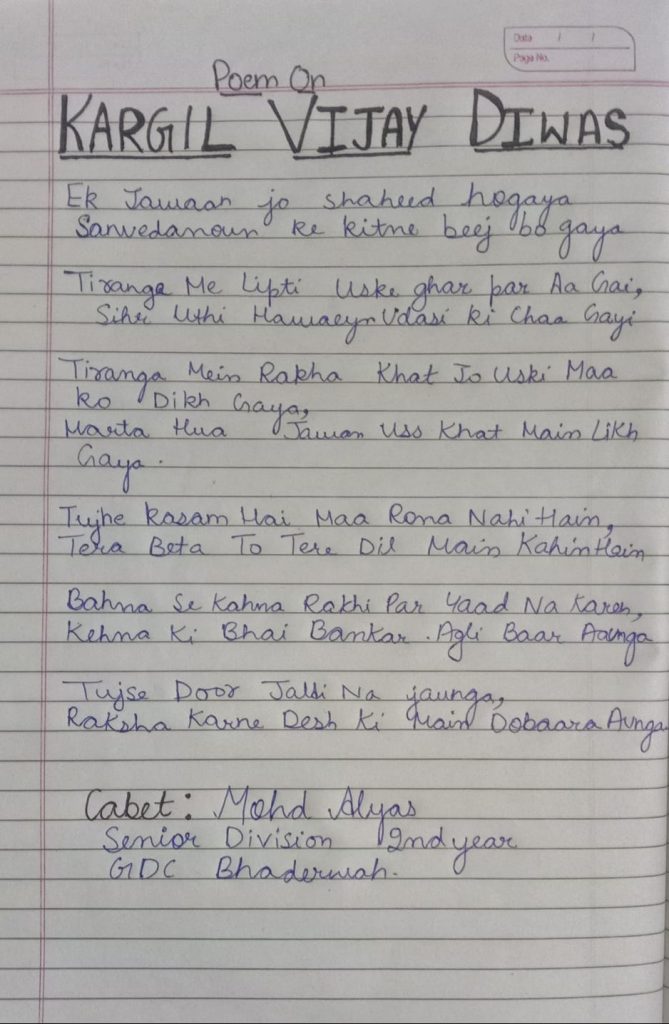 Date / /
Page No.
Poem On
KARGIL VIJAY DIWAS
Ek Jawaan jo shaheed hogaya
Sanvedanoun ke kitne beej bo gaya
Tiranga Me Lipti Uske ghar par Aa Gai,
Sihr Uthi Hawaeyn Udasi ki Chaa Gayi
Tiranga Mein Rakha Khat Jo Uski Maa
ko Dikh Gaya,
Marta Hua Jawan Uss Khat Main Likh
Gaya.
Tujhe Kasam Hai Maa Rona Nahi Hain,
Tera Beta To Tere Dil Main Kahin Hain
Bahna Se Kahna Rakhi Par Yaad Na Karen,
Kehna Ki Bhai Bankar . Agli Baar Aaunga
Tujse Door Jaldi Na jaunga,
Raksha Karne Desh Ki Main Dobaara Aunga
Cabet: Mohd Alyas
Senior Division 2nd year
GDC Bhaderwah.